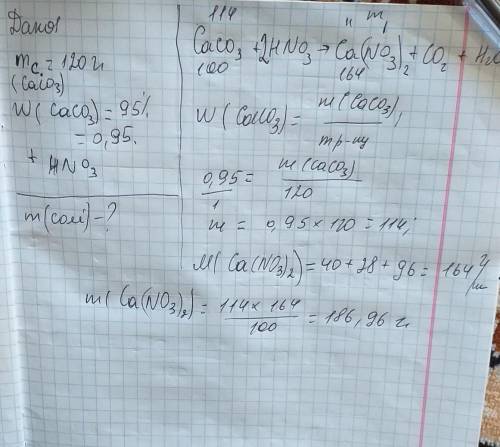 Дано:
m с. = 120 г
(CaCO3)
W(CaCO3) = 95%
= 0,95.
+ HNO3
m(соли) - ?
114 " m,
CaCO3 + 2HNO3 → Ca(NO3)2 + CO2 + H2O
100 164
W(CaCO3) = m(CaCO3) /
mр-ну
0,95 = m(CaCO3)
1 120
m = 0,95 × 120 = 114;
M(Ca(NO3)2) = 40 + 28 + 96 = 164 г/м
m(Ca(NO3)2) = 114 × 164 = 186,96 г
100